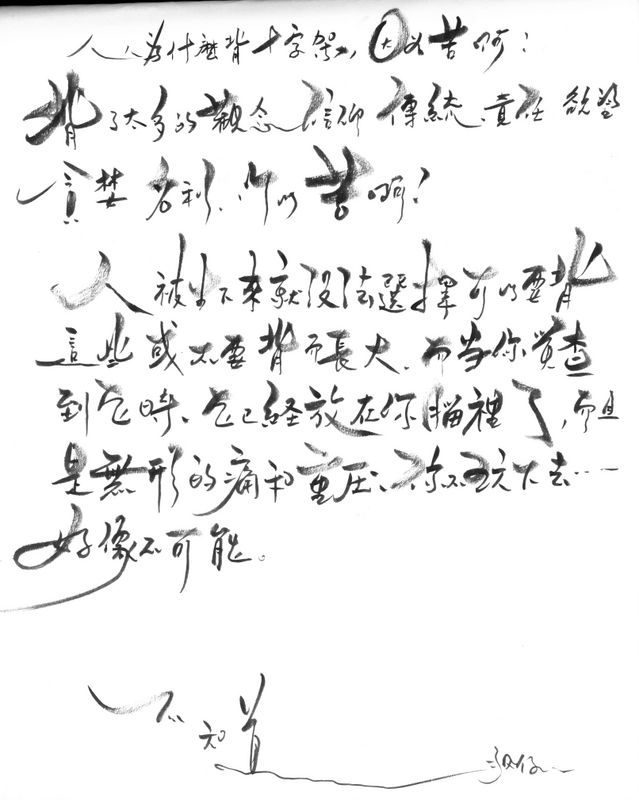 人人為什麼背十字架,因為苦啊?
背了太多的觀念、信仰、傳統、責任、慾望
貪婪、名利、所以苦啊?
人被生下來就沒法選擇可以要背
這些或不要背而長大、而當你覺查
到它時、它已經放在你腦裡了,而且
是無形的痛和重压、你不玩下去……
好像不可能。
不知道